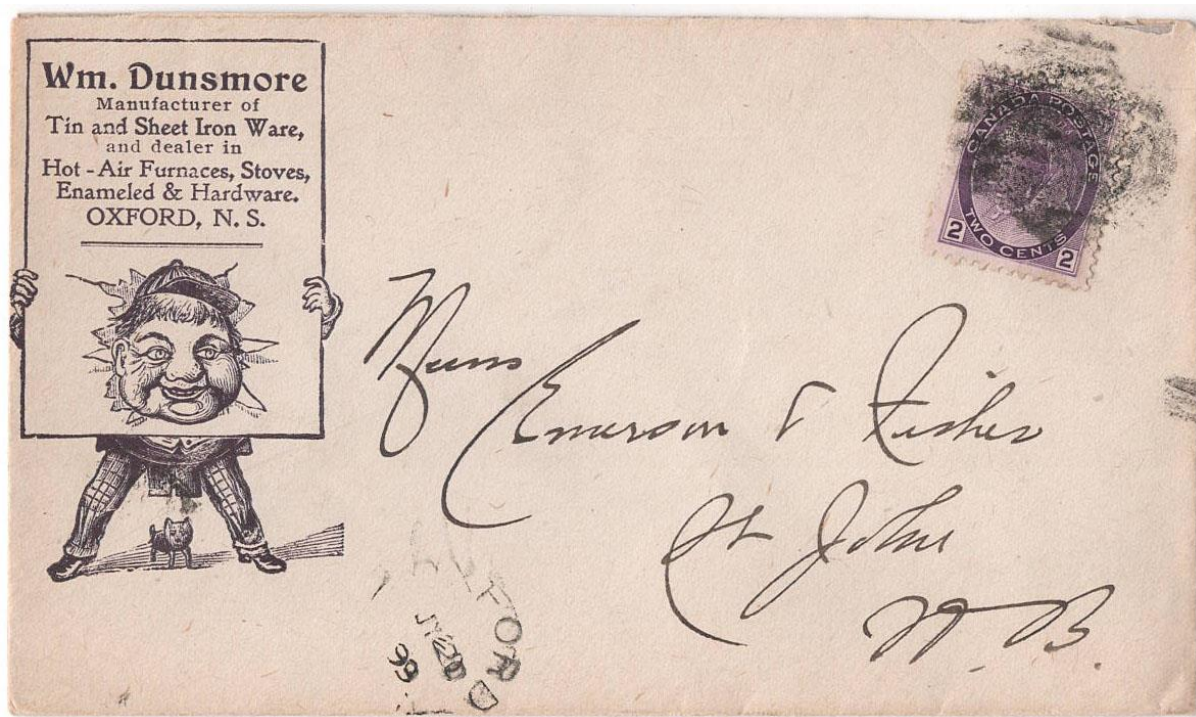 Wm. Dunsmore
Manufacturer of
Tin and Sheet Iron Ware,
and dealer in
Hot-Air Furnaces, Stoves,
Enameled & Hardware.
OXFORD, N. S.
CANADA POSTAGE
2 TWO CENTS 2
Messrs
Emerson & Fisher
St John
N. B.
OXFORD
20
99